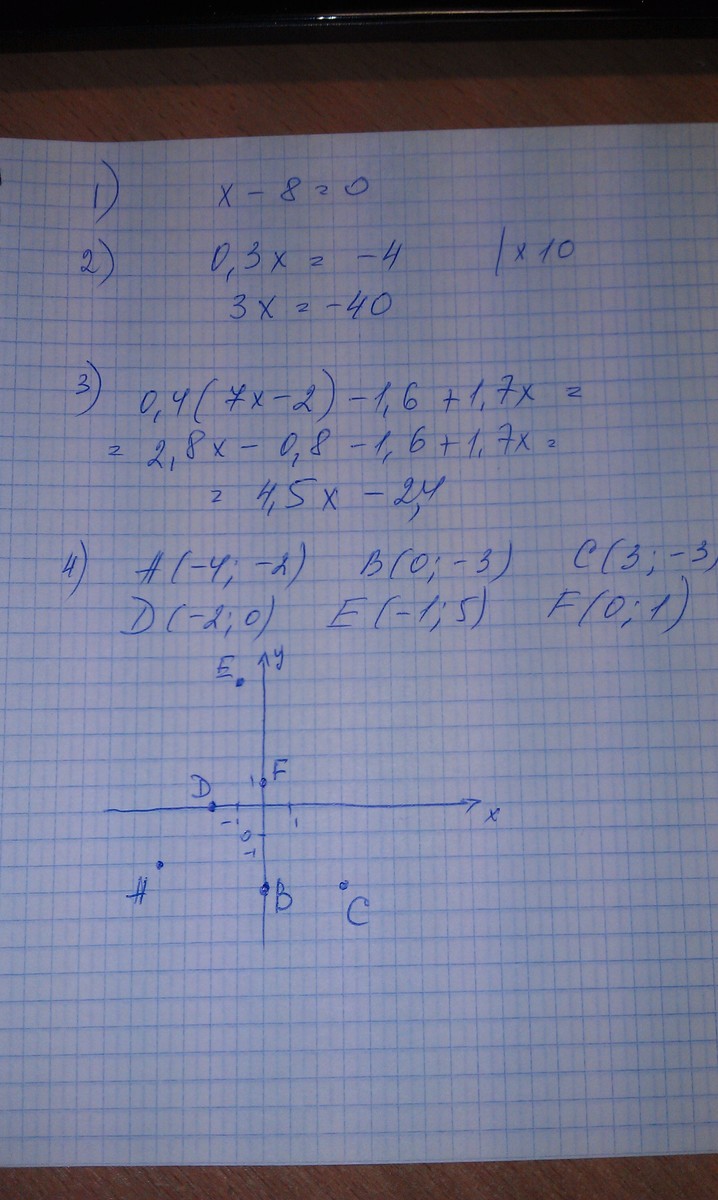 1) x - 8 = 0
2) 0,3x = -4 | x 10
3x = -40
3) 0,4(7x-2) -1,6 +1,7x =
= 2,8x - 0,8 -1,6+1,7x =
= 4,5x - 2,4
4) A(-4; -2) B(0; -3) C(3; -3)
D(-2; 0) E(-1; 5) F(0; 1)
E y
1 F
D
-1 1 x
0
-1
A B C